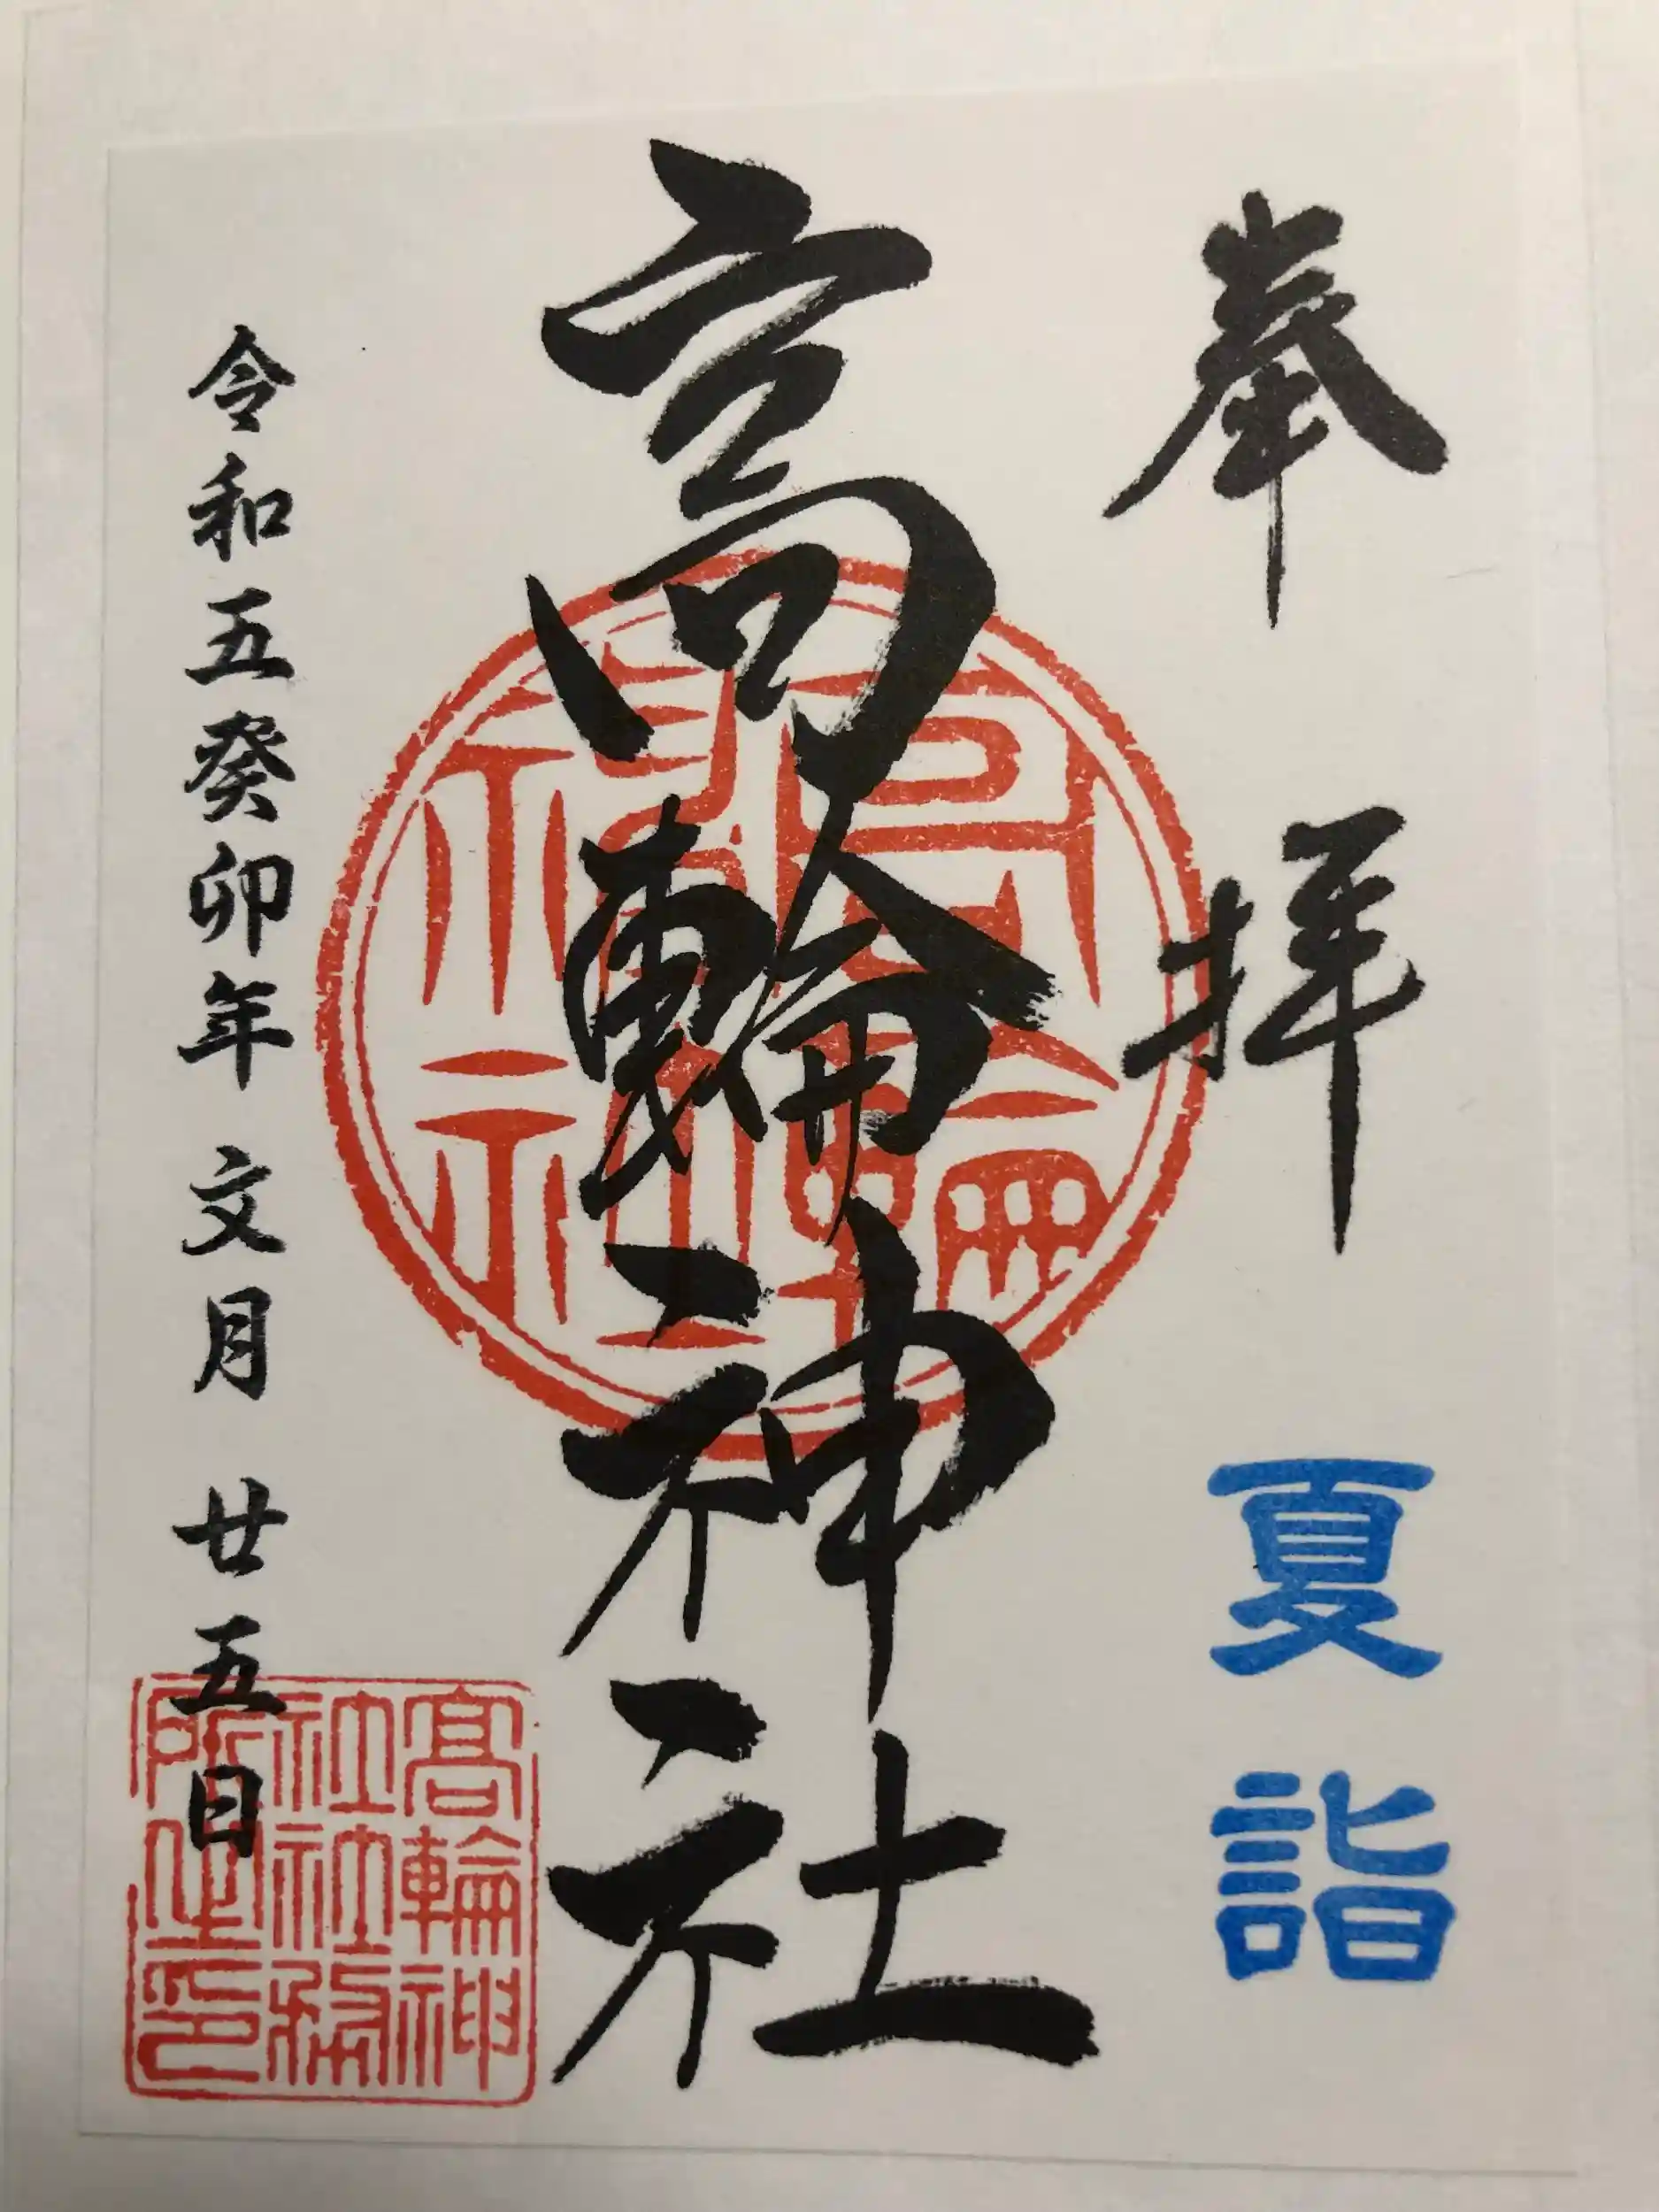 奉拝
夏詣
高輪神社
高輪神社
令和五癸卯年 文月 廿五日
髙輪神
社社務
所之印